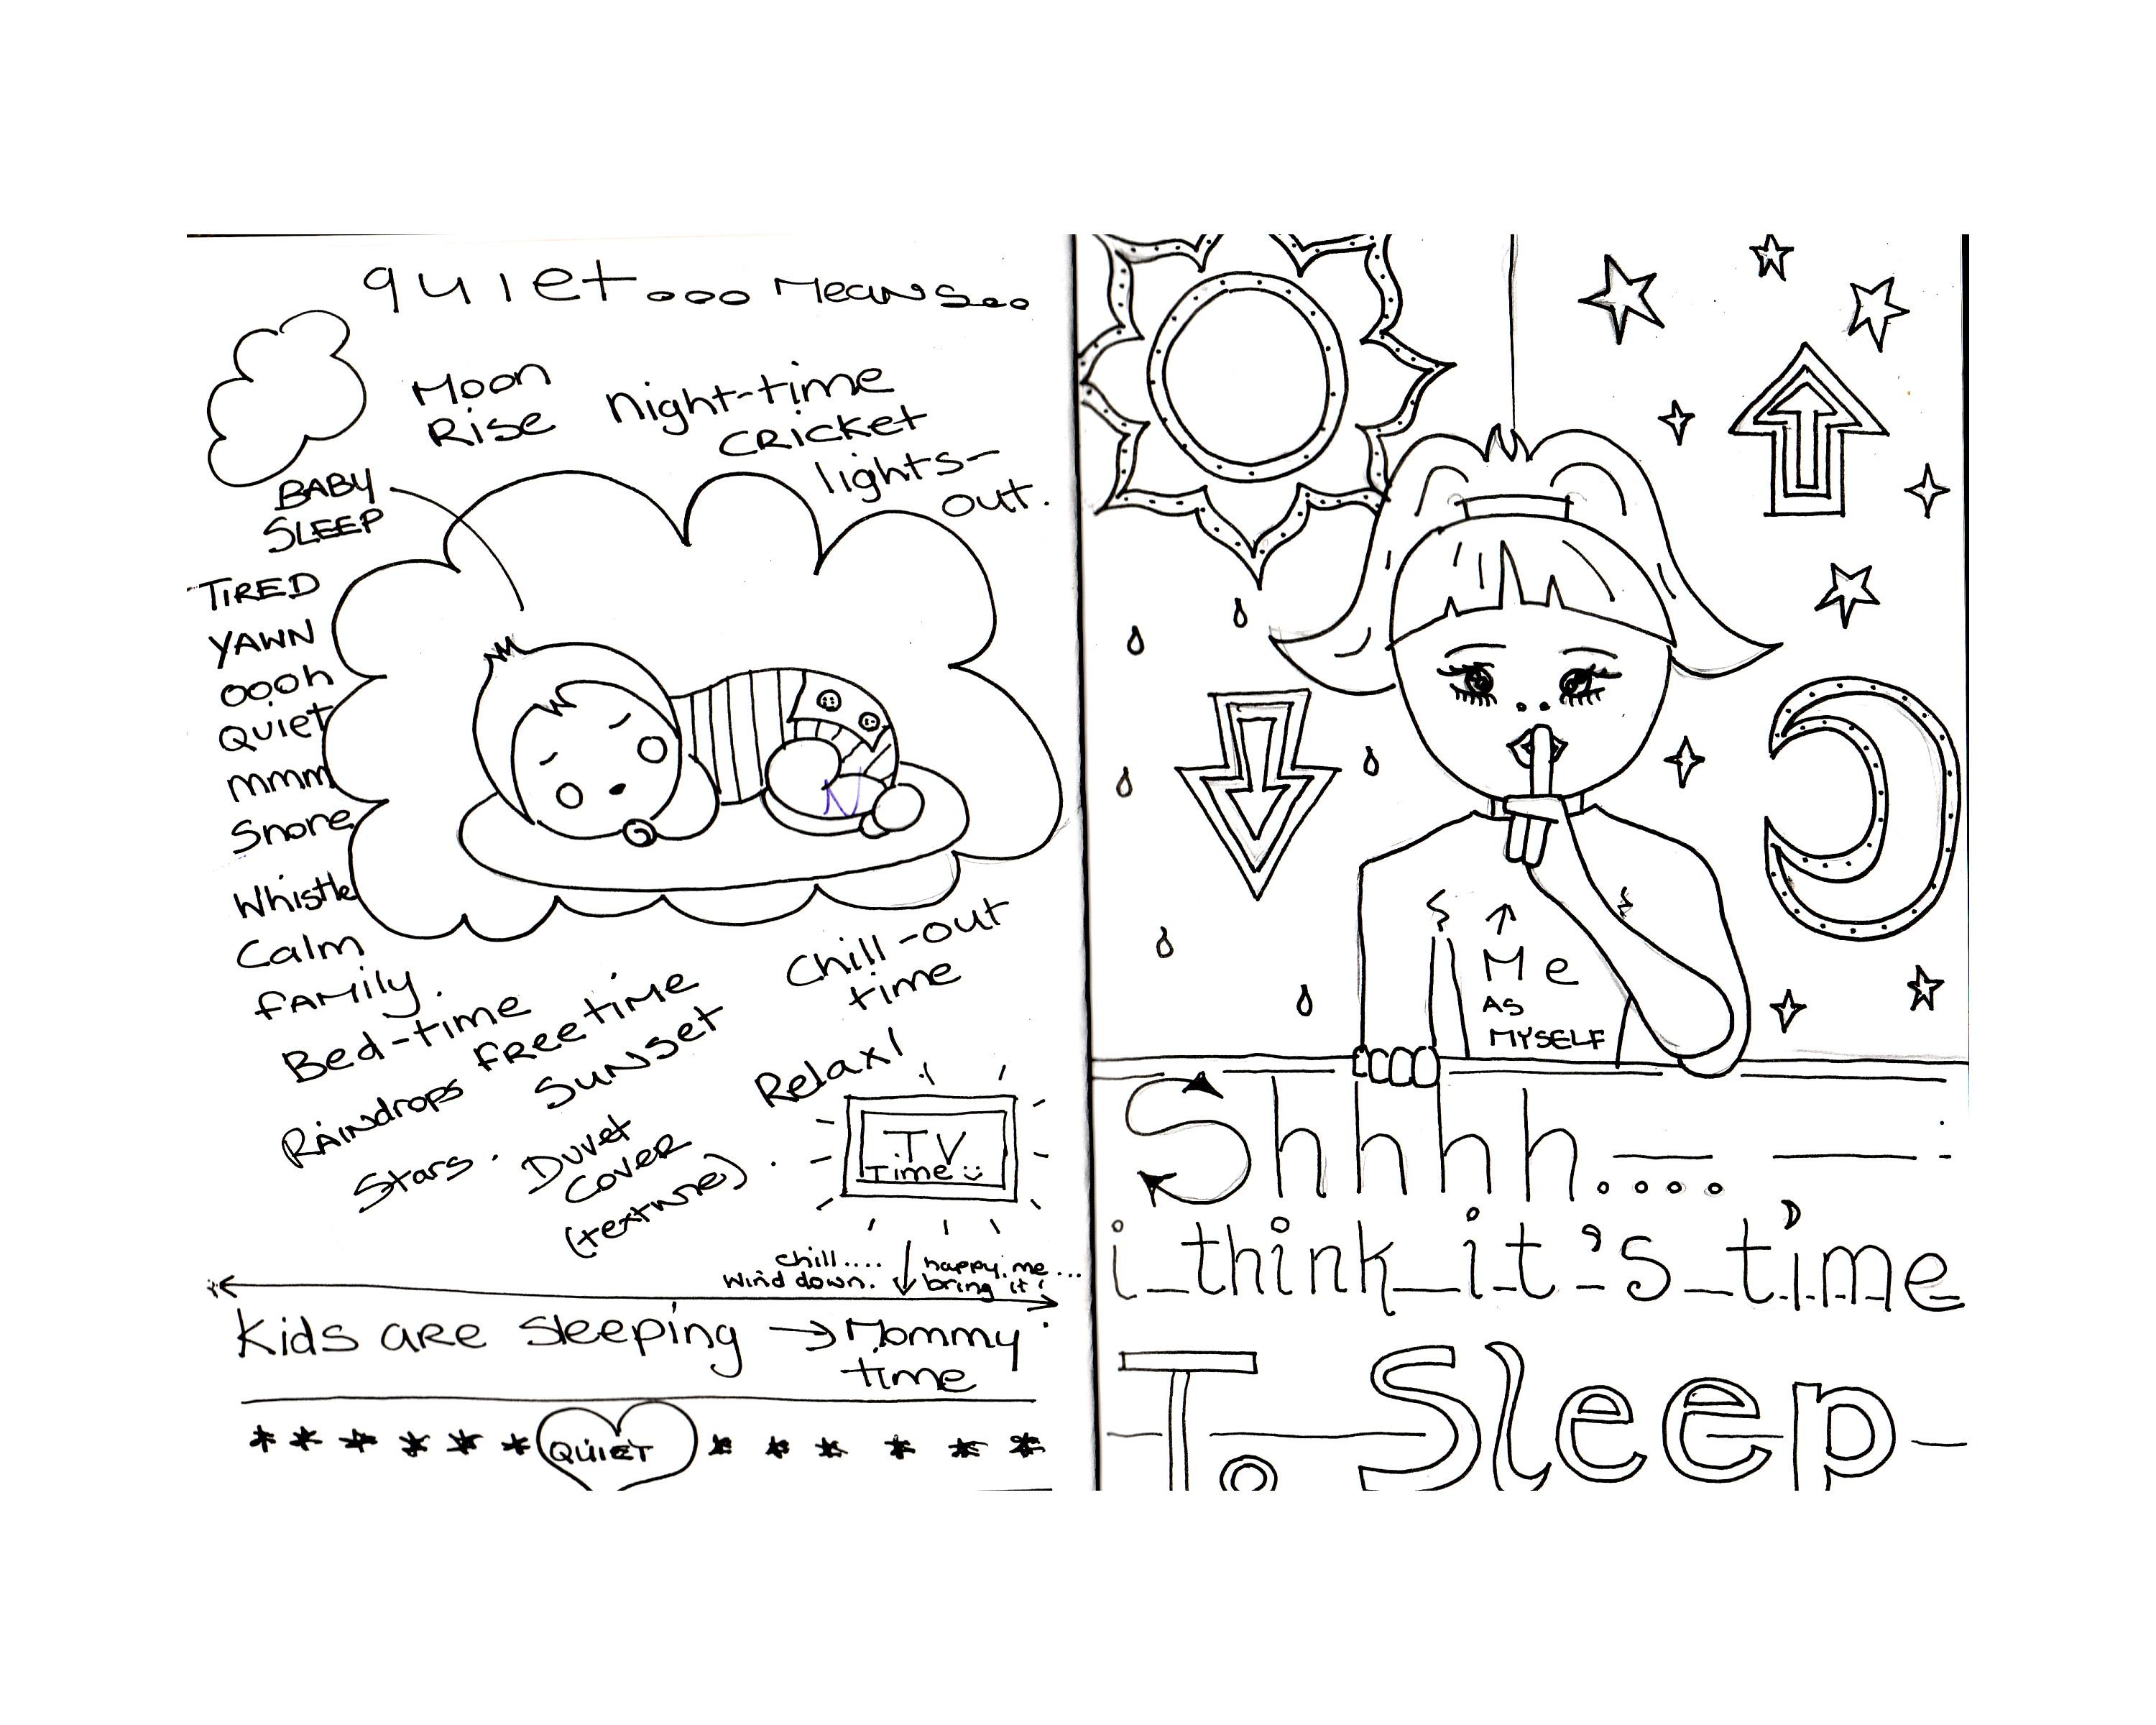 quiet...means...
Moon
Rise
Night-time
CRicket
lights-
out.
BABY
SLEEP
TIRED
YAWN
oooh
Quiet
mmm
Snore
Whistle
Calm
FAMily.
Bed-time
FReetiMe
SunSet
Chill-out
time
Relax!
RAiNdrops
Stars.
Duvet
COVER
(texture).
TV
Time
chill....
Wind down.
happy me...
bring it!
Kids aRe sleeping → Mommy
time
* * * * * * QUIET * * * * * *
Me
AS
MYSELF
Shhhh....
i_think_it's_time
To Sleep